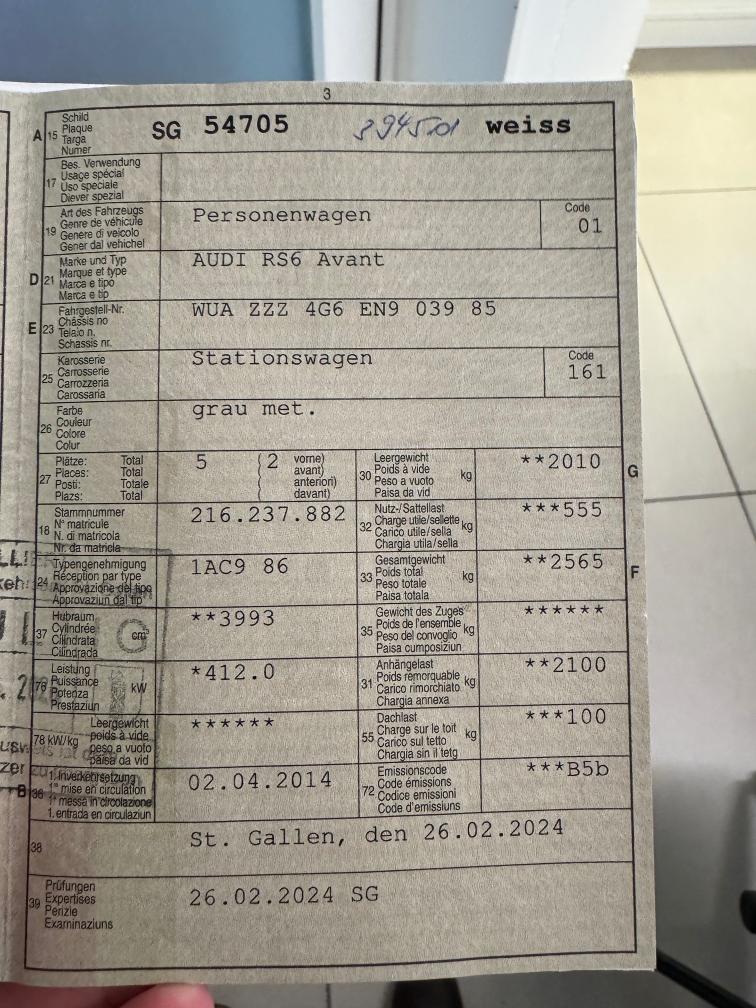 3
A 15 Schild Plaque Targa Numer SG 54705 weiss
17 Bes. Verwendung Usage spécial Uso speciale Diever spezial
19 Art des Fahrzeugs Genre de véhicule Genere di veicolo Gener dal vehichel Personenwagen Code 01
D 21 Marke und Typ Marque et type Marca e tipo Marca e tip AUDI RS6 Avant
E 23 Fahrgestell-Nr. Châssis no Telaio n. Schassis nr. WUA ZZZ 4G6 EN9 039 85
25 Karosserie Carrosserie Carrozzeria Carossaria Stationswagen Code 161
26 Farbe Couleur Colore Colur grau met.
27 Plätze: Total Places: Total Posti: Totale Plazs: Total 5 (2 vorne) avant) anteriori) davant)
30 Leergewicht Poids à vide Peso a vuoto Paisa da vid kg **2010 G
18 Stammnummer N° matricule N. di matricola Nr. da matricla 216.237.882
32 Nutz-/Sattellast Charge utile/sellette Carico utile/sella Chargia utila/sella kg ***555
24 Typengenehmigung Réception par type Approvazione del tipo Approvaziun dal tip 1AC9 86
33 Gesamtgewicht Poids total Peso totale Paisa totala kg **2565 F
37 Hubraum Cylindrée Cilindrata Cilindrada cm³ **3993
35 Gewicht des Zuges Poids de l'ensemble Peso del convoglio Paisa cumposiziun kg ******
76 Leistung Puissance Potenza Prestaziun kW *412.0
31 Anhängelast Poids remorquable Carico rimorchiato Chargia annexa kg **2100
78 kW/kg Leergewicht poids à vide peso a vuoto paisa da vid ******
55 Dachlast Charge sur le toit Carico sul tetto Chargia sin il tetg kg ***100
B 36 1. Inverkehrsetzung 1re mise en circulation 1a messa in circolazione 1. entrada en circulaziun 02.04.2014
72 Emissionscode Code émissions Codice emissioni Code d'emissiuns ***B5b
38 St. Gallen, den 26.02.2024
39 Prüfungen Expertises Perizie Examinaziuns 26.02.2024 SG